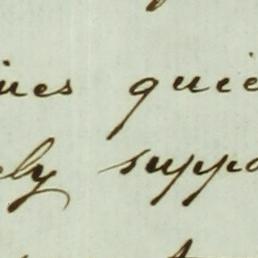 ues quie
ely suppo